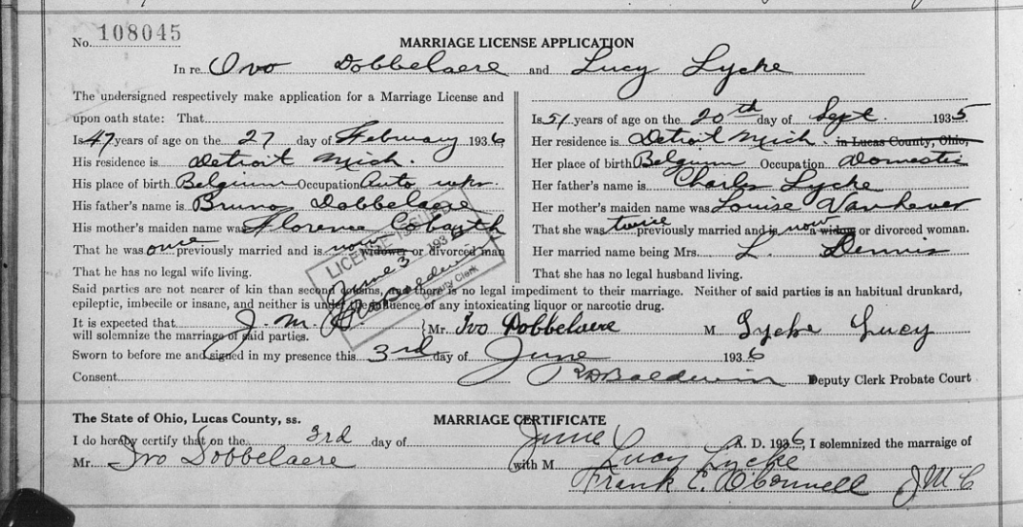 No. 108045
MARRIAGE LICENSE APPLICATION
In re Ovo Dobbelaere and Lucy Lycke
The undersigned respectively make application for a Marriage License and
upon oath state: That
Is 47 years of age on the 27 day of February 1936
His residence is Detroit Mich.
His place of birth Belgium Occupation Auto wkr.
His father's name is Bruno Dobbelaere
His mother's maiden name was Florence
That he was once previously married and is now widower or divorced man
That he has no legal wife living.
Is 51 years of age on the 20th day of Sept. 1935
Her residence is Detroit Mich. in Lucas County, Ohio,
Her place of birth Belgium Occupation Domestic
Her father's name is Charles Lycke
Her mother's maiden name was Louise Vanhever
That she was twice previously married and is now a widow or divorced woman.
Her married name being Mrs. L. Dennis
That she has no legal husband living.
LICENSE ISSUED
June 3 1936
R D Baldwin
Deputy Clerk
Said parties are not nearer of kin than second cousins, and there is no legal impediment to their marriage. Neither of said parties is an habitual drunkard,
epileptic, imbecile or insane, and neither is under the influence of any intoxicating liquor or narcotic drug.
It is expected that J. M. C. Mr. Ivo Dobbelaere M Lycke Lucy
will solemnize the marriage of said parties.
Sworn to before me and signed in my presence this 3rd day of June 1936
Consent R D Baldwin Deputy Clerk Probate Court
The State of Ohio, Lucas County, ss. MARRIAGE CERTIFICATE
I do hereby certify that on the 3rd day of June A. D. 1936, I solemnized the marraige of
Mr. Ivo Dobbelaere with M Lucy Lycke
Frank E. O'Connell J M C